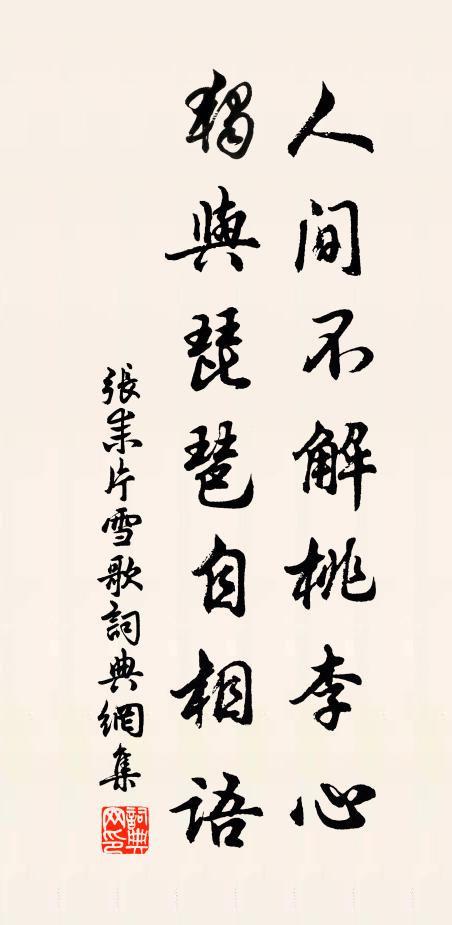 人間不解桃李心
獨與琵琶自相語
張耒片雪歌詞典網集
詞典網印